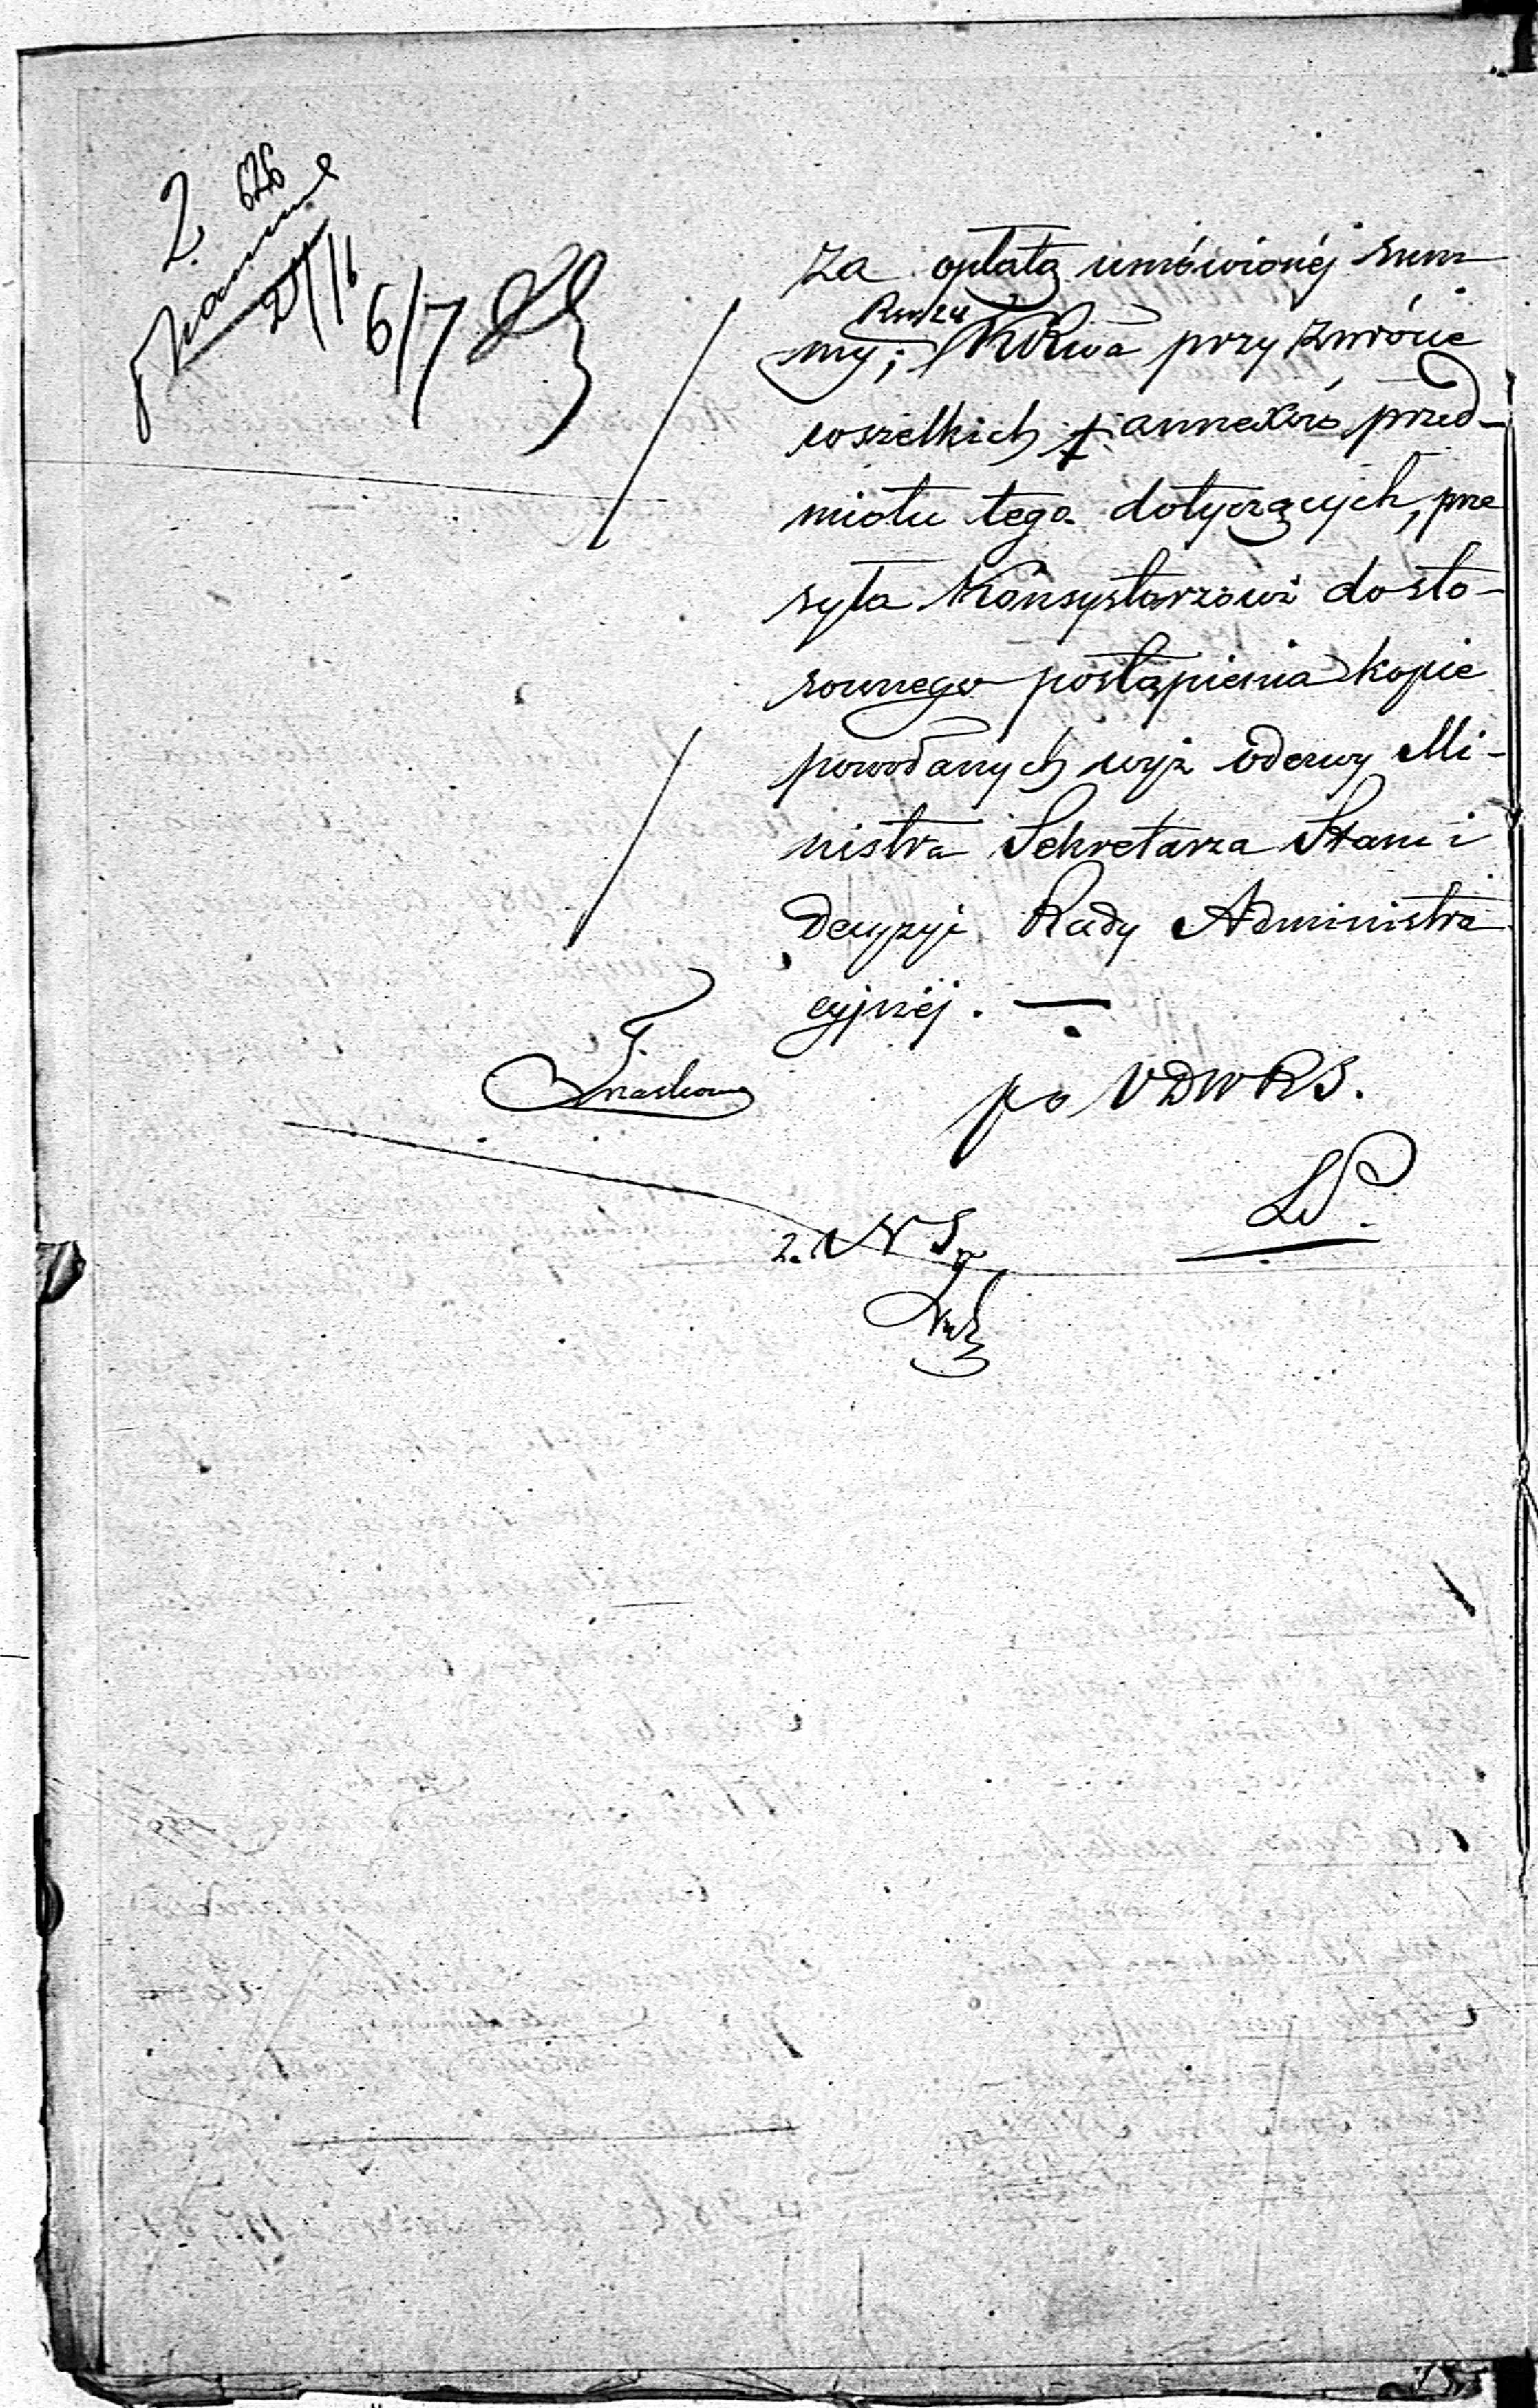 2. 626
21/6
6/7
za opłatą umówionéj sum
my; KRWa przy zwrócie
wszelkich annexów przed-
miotu tego dotyczących, prze
syła Konsystorzowi do sto-
sownego postąpienia kopie
powołanych wyż odezwy Mi-
nistra Sekretarza Stanu i
Decyzyi Rady Administra
cyjnéj. —
po VDWRS.
LP.
2. NS